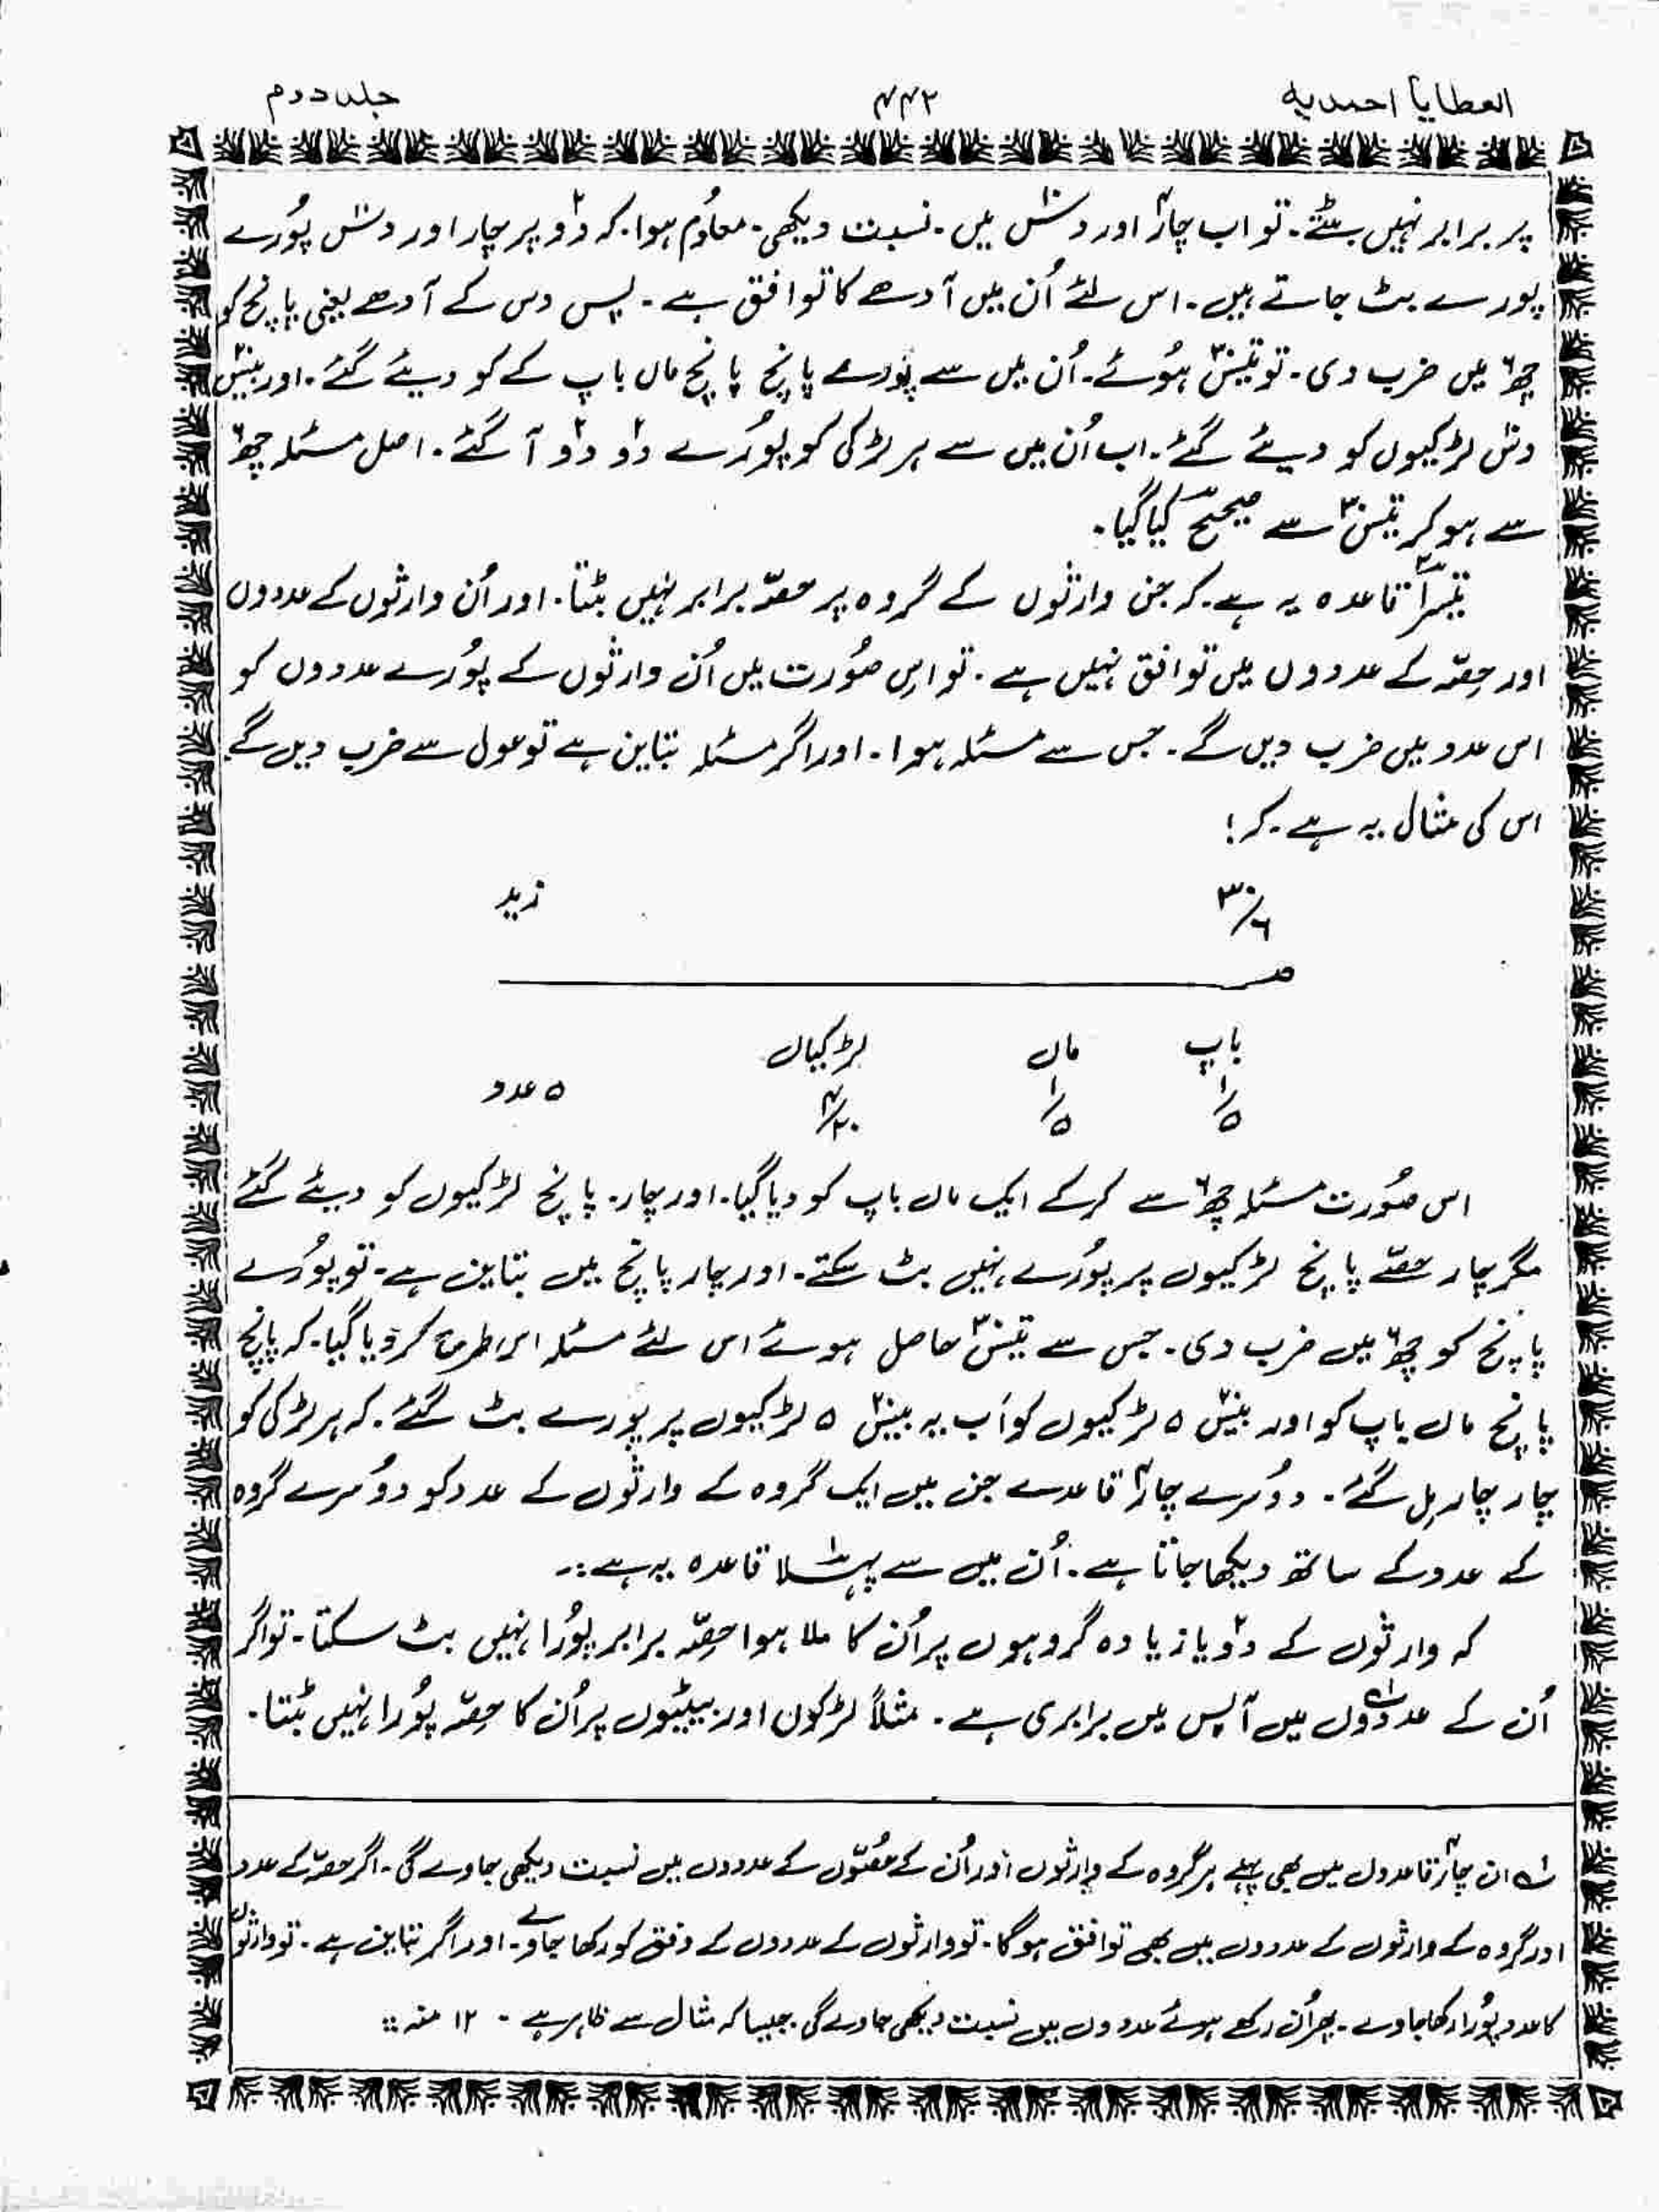 العطایا احمدیہ
۴۴۲
جلد دوم
پر برابر نہیں بٹتے۔ تو اب چار۴ اور دس۱۰ میں۔ نسبت دیکھی۔ معلوم ہوا۔ کہ دو۲ پر چار اور دس۱۰ پُورے
پورے بٹ جاتے ہیں۔ اس لئے اُن میں آدھے کا توافق ہے۔ پس دس کے آدھے یعنی پانچ کو
چھ۶ میں ضرب دی۔ تو تیس۳۰ ہُوئے۔ اُن میں سے پُورے پانچ پانچ ماں باپ کے کو دیئے گئے۔ اور بیس۲۰
دس۱۰ لڑکیوں کو دیئے گئے۔ اب اُن میں سے ہر لڑکی کو پُورے دو۲ دو۲ آ گئے۔ اصل مسئلہ چھ۶
سے ہو کر تیس۳۰ سے صحیح کیا گیا۔
تیسرا۳ قاعدہ یہ ہے۔ کہ جن وارثوں کے گروہ پر حصّہ برابر نہیں بٹتا۔ اور اُن وارثوں کے عددوں
اور حصّہ کے عددوں میں توافق نہیں ہے۔ تو اس صُورت میں اُن وارثوں کے پُورے عددوں کو
اس عدد میں ضرب دیں گے۔ جس سے مسئلہ ہوا۔ اور اگر مسئلہ تباین ہے تو عول سے ضرب دیں گے
اس کی مثال یہ ہے۔ کہ؛
۳۰/۶ زید
مـــــــ
باپ ماں لڑکیاں
۱/۵ ۱/۵ ۴/۲۰ ۵ عدد
اس صُورت مسئلہ چھ۶ سے کرکے ایک ماں باپ کو دیا گیا۔ اور چار۔ پانچ لڑکیوں کو دیئے گئے
مگر چار حصّے پانچ لڑکیوں پر پُورے نہیں بٹ سکتے۔ اور چار پانچ میں تباین ہے۔ تو پُورے
پانچ کو چھ۶ میں ضرب دی۔ جس سے تیس۳۰ حاصل ہوئے اس لئے مسئلہ اس طرح کر دیا گیا۔ کہ پانچ
پانچ ماں باپ کو اور بیس۲۰ ۵ لڑکیوں کو اَب یہ بیس۲۰ ۵ لڑکیوں پر پورے بٹ گئے۔ کہ ہر لڑکی کو
چار چار مِل گئے۔ دوُسرے چار۴ قاعدے جن میں ایک گروہ کے وارثوں کے عدد کو دوُسرے گروہ
کے عدد کے ساتھ دیکھا جاتا ہے۔ اُن میں سے پہلا۱ قاعدہ یہ ہے:۔
کہ وارثوں کے دو۲ یا زیادہ گروہوں پر اُن کا ملا ہوا حصّہ برابر پُورا نہیں بٹ سکتا۔ تو اگر
اُن کے عددوں۱ میں آپس میں برابری ہے۔ مثلاً لڑکوں اور بیٹیوں پر اُن کا حصّہ پُورا نہیں بٹتا۔
۱؎ ان چار۴ قاعدوں میں بھی پہلے ہر گروہ کے وارثوں اور اُن کے حصّوں کے عددوں میں نسبت دیکھی جاوے گی۔ اگر حصّہ کے عدد
اور گروہ کے وارثوں کے عددوں میں بھی توافق ہوگا۔ تو وارثوں کے عددوں کے وفق کو رکھا جاوے۔ اور اگر تباین ہے۔ تو وارثوں
کا عدد پُورا رکھا جاوے۔ پھر اُن رکھے ہوئے عددوں میں نسبت دیکھی جاوے گی۔ جیسا کہ مثال سے ظاہر ہے۔ ۱۲ منہ ::